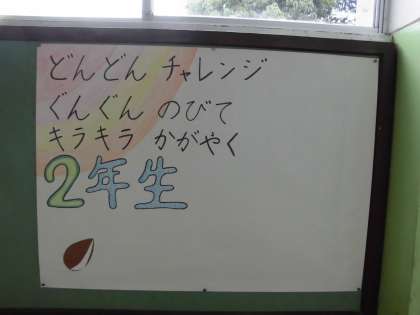 どんどん チャレンジ
ぐんぐん のびて
キラキラ かがやく
2年生